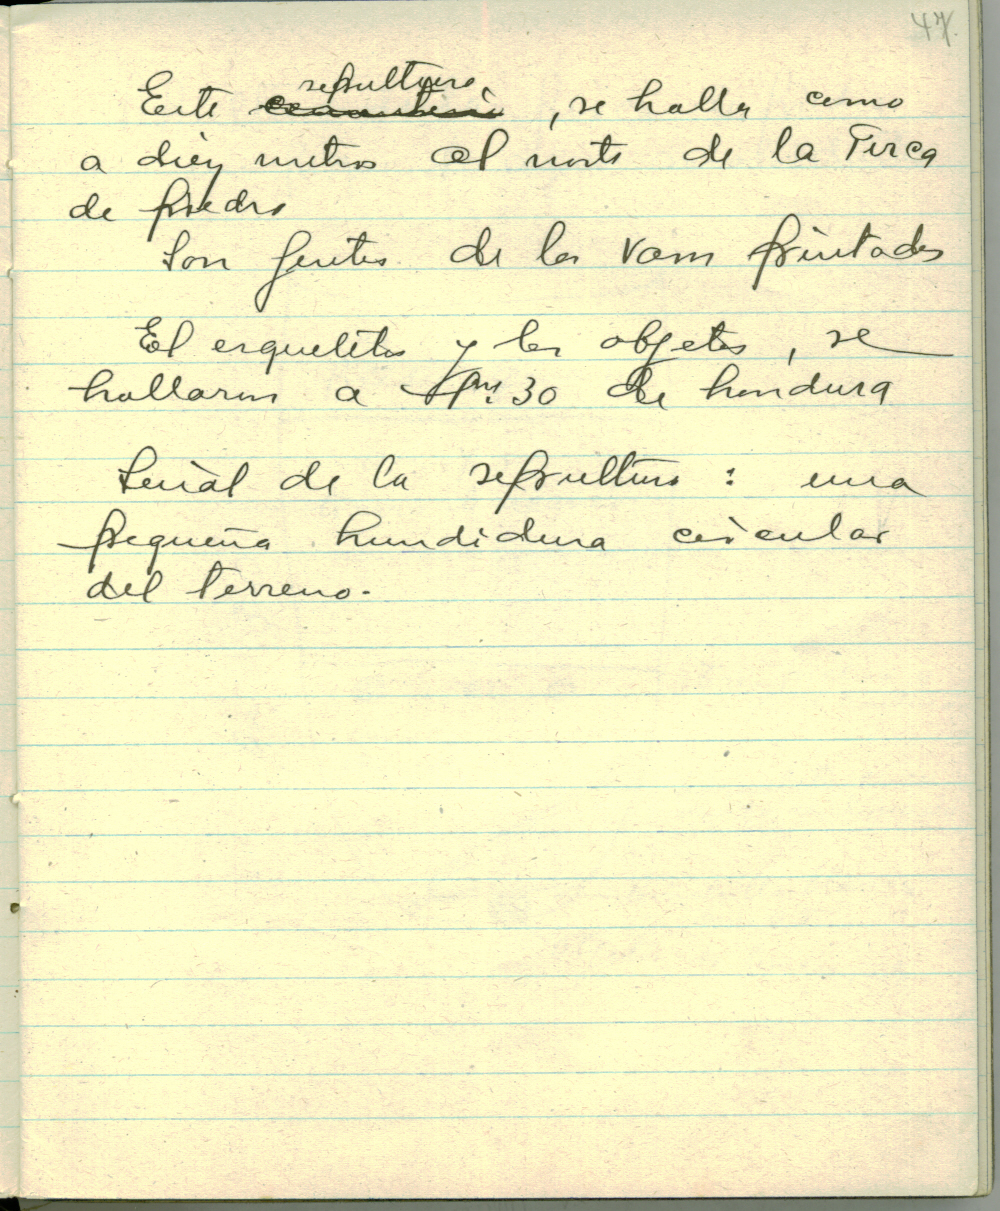 47.
sepultura
Este cementerio, se halla como
a diez metros al norte de la Pirca
de piedra
Son gentes de los vasos pintados
El esqueletos y los objetos, se
hallaron a 1m. 30 de hondura
Señal de la sepultura : una
pequeña hundidura circular
del terreno.